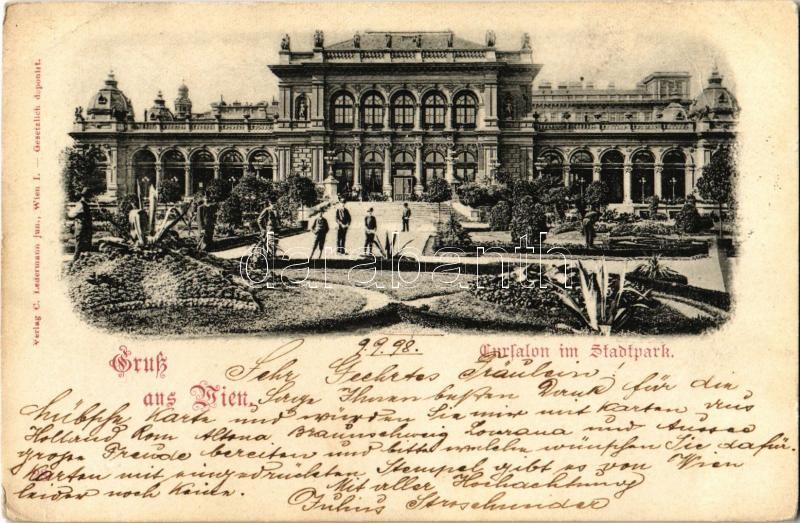 Verlag C. Ledermann jun., Wien I. — Gesetzlich deponirt.
darabanth
Gruß
aus Wien.
Cursalon im Stadtpark.
9.9.98.
Sehr Geehrtes Fräulein!
Sage Ihnen besten Dank für die
hübsche Karte und würden Sie mir mit Karten aus
Holland Rom Altona Braunschweig Lovrana und Aussee
große Freude bereiten und bitte welche wünschen Sie dafür.
Karten mit eingedrückten Stempel gibt es von Wien
leider noch keine. Mit aller Hochachtung
Julius